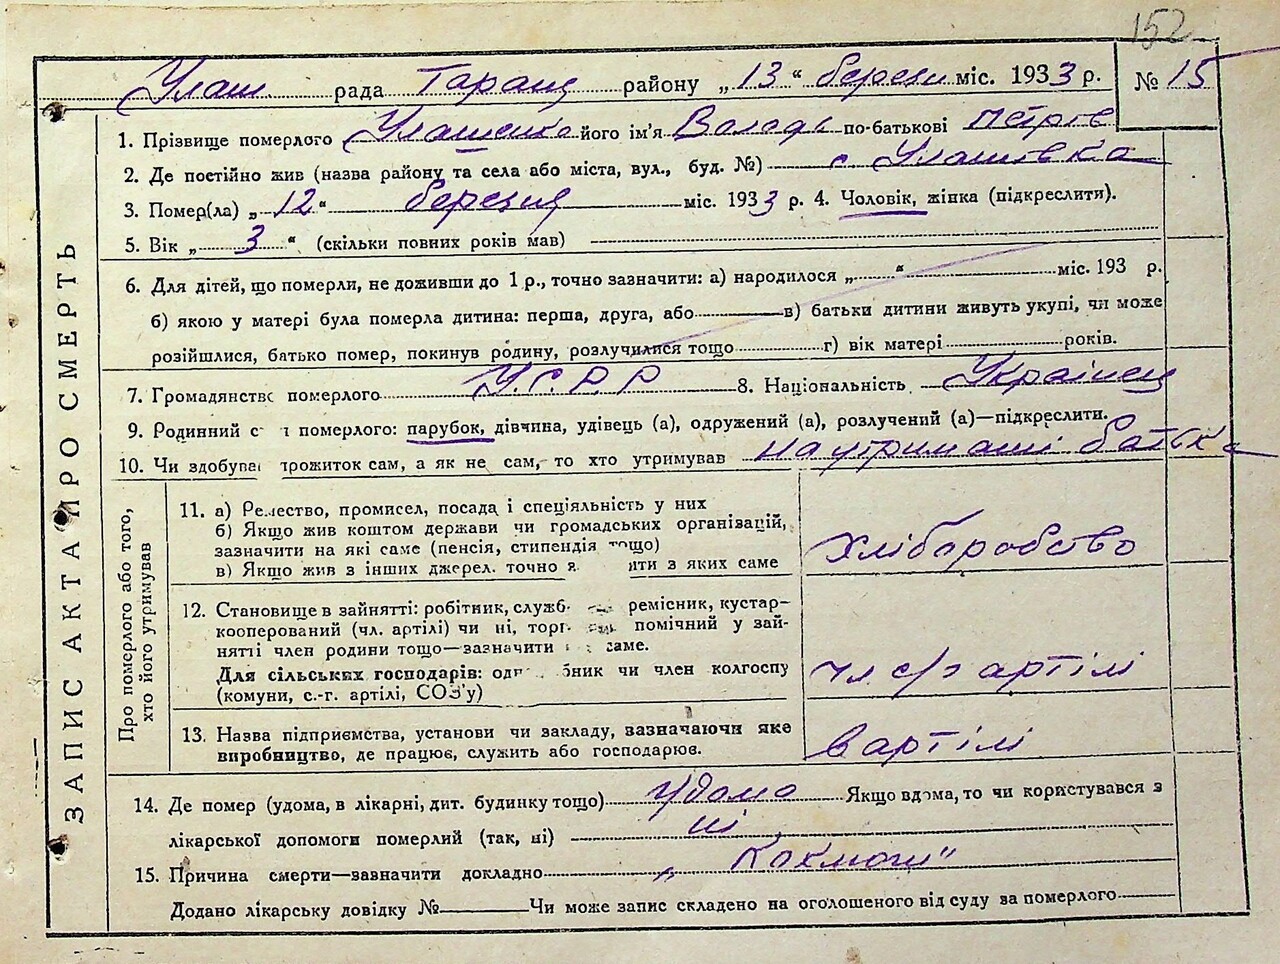 152
Улаш. рада Таращ району „13“ березня міс. 1933 р. № 15
1. Прізвище померлого Улашенко його ім'я Володь по-батькові Петров
2. Де постійно жив (назва району та села або міста, вул., буд. №) с. Улашовка
3. Помер(ла) „12“ березня міс. 1933 р. 4. Чоловік, жінка (підкреслити).
5. Вік „3“ (скільки повних років мав)
6. Для дітей, що померли, не доживши до 1 р., точно зазначити: а) народилося „ “ міс. 193 р.
б) якою у матері була померла дитина: перша, друга, або в) батьки дитини живуть укупі, чи може
розійшлися, батько помер, покинув родину, розлучилися тощо г) вік матері років.
7. Громадянство померлого У.С.Р.Р 8. Національність Українец
9. Родинний с і померлого: парубок, дівчина, удівець (а), одружений (а), розлучений (а)—підкреслити.
10. Чи здобував прожиток сам, а як не сам, то хто утримував на утримані батька
ЗАПИС АКТА ПРО СМЕРТЬ
Про померлого або того,
хто його утримував
11. а) Ремество, промисел, посада і спеціяльність у них
б) Якщо жив коштом держави чи громадських організацій,
зазначити на які саме (пенсія, стипендія тощо)
в) Якщо жив з інших джерел, точно з яких саме
хліборобство
12. Становище в зайнятті: робітник, служб ремісник, кустар-
кооперований (чл. артілі) чи ні, торг помічний у зай-
нятті член родини тощо—зазначити саме.
Для сільських господарів: одноосібник чи член колгоспу
(комуни, с.-г. артілі, СОЗ'у)
чл. с/г артілі
13. Назва підприємства, установи чи закладу, зазначаючи яке
виробництво, де працює, служить або господарює.
в артілі
14. Де помер (удома, в лікарні, дит. будинку тощо) удома Якщо вдома, то чи користувався з
лікарської допомоги померлий (так, ні) ні
15. Причина смерти—зазначити докладно
Додано лікарську довідку № Чи може запис складено на оголошеного від суду за померлого